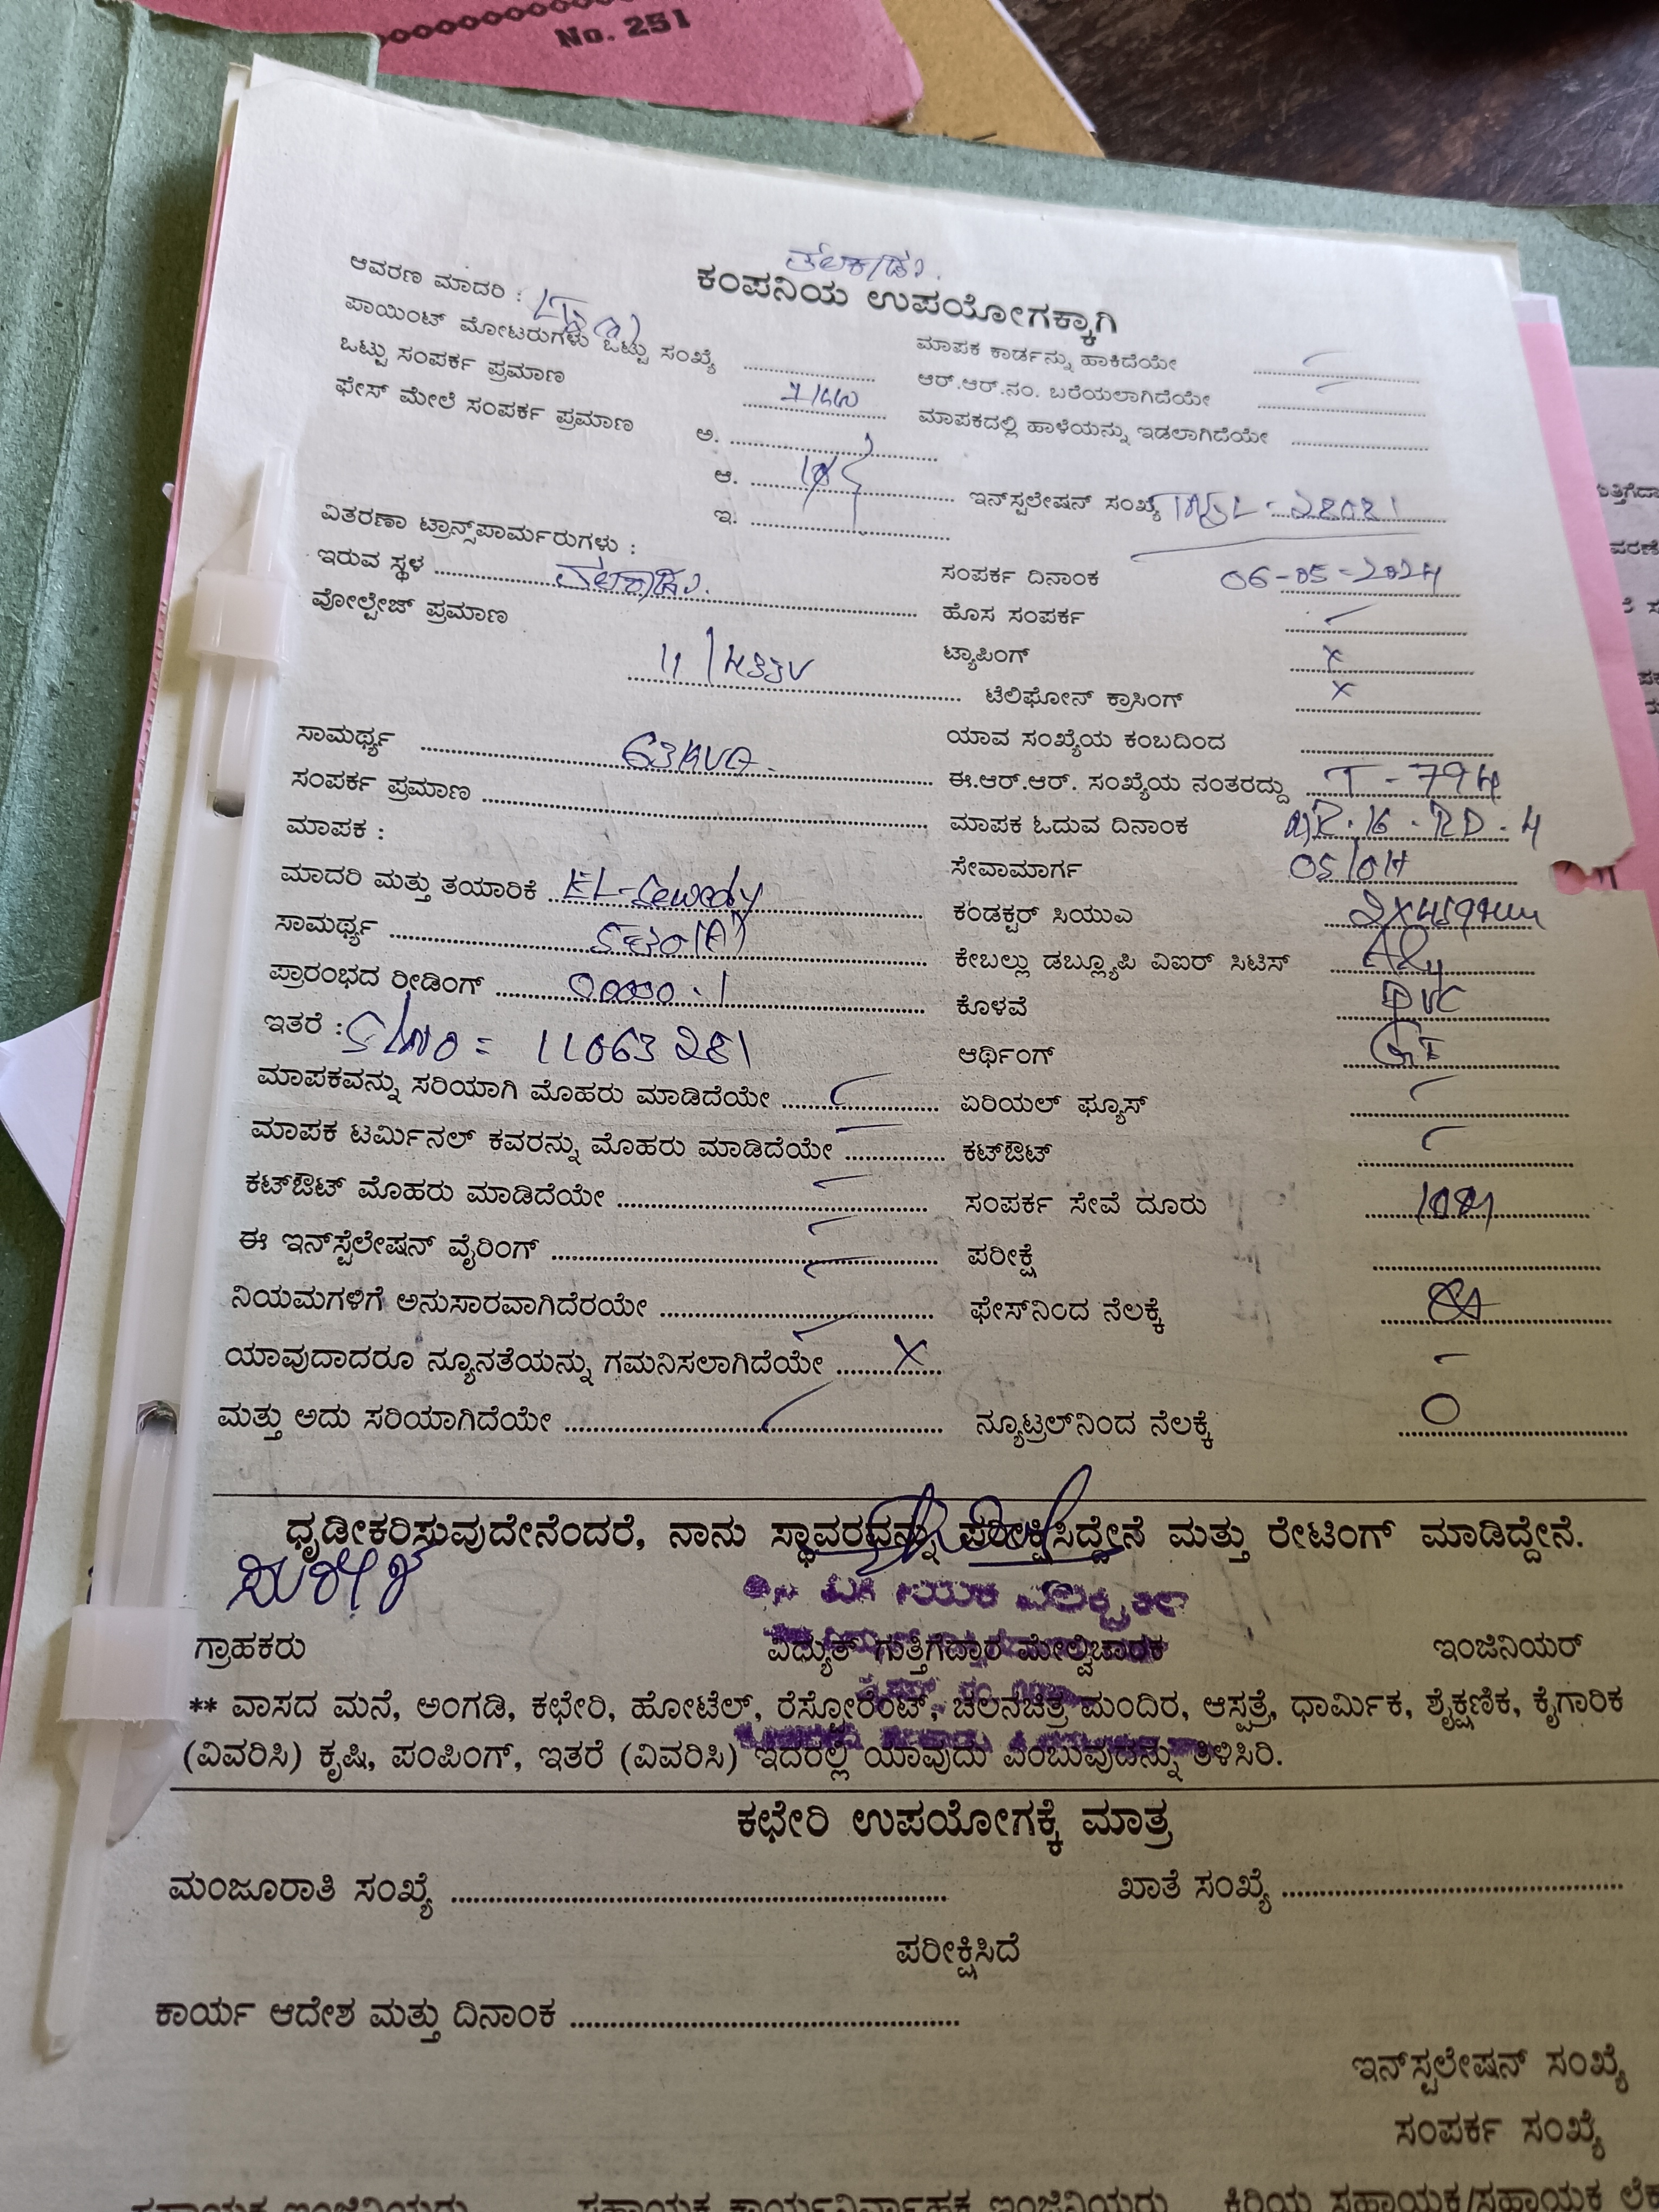 No. 251
ತಲಕಾಡು.
ಕಂಪನಿಯ ಉಪಯೋಗಕ್ಕಾಗಿ
ಆವರಣ ಮಾದರಿ :
ಪಾಯಿಂಟ್ ಮೋಟರುಗಳು ಒಟ್ಟು ಸಂಖ್ಯೆ
ಮಾಪಕ ಕಾರ್ಡನ್ನು ಹಾಕಿದೆಯೇ
ಒಟ್ಟು ಸಂಪರ್ಕ ಪ್ರಮಾಣ
ಆರ್.ಆರ್.ನಂ. ಬರೆಯಲಾಗಿದೆಯೇ
ಫೇಸ್ ಮೇಲೆ ಸಂಪರ್ಕ ಪ್ರಮಾಣ
ಅ.
ಮಾಪಕದಲ್ಲಿ ಹಾಳೆಯನ್ನು ಇಡಲಾಗಿದೆಯೇ
ಆ.
ಇನ್‌ಸ್ಟಲೇಷನ್ ಸಂಖ್ಯೆ
ಇ.
ವಿತರಣಾ ಟ್ರಾನ್ಸ್‌ಪಾರ್ಮರುಗಳು :
ಇರುವ ಸ್ಥಳ ತಲಕಾಡು.
ಸಂಪರ್ಕ ದಿನಾಂಕ 06-05-2024
ವೋಲ್ಟೇಜ್ ಪ್ರಮಾಣ 11/433V
ಹೊಸ ಸಂಪರ್ಕ
ಟ್ಯಾಪಿಂಗ್ x
ಟೆಲಿಫೋನ್ ಕ್ರಾಸಿಂಗ್ x
ಸಾಮರ್ಥ್ಯ 63KVA.
ಯಾವ ಸಂಖ್ಯೆಯ ಕಂಬದಿಂದ
ಸಂಪರ್ಕ ಪ್ರಮಾಣ
ಈ.ಆರ್.ಆರ್. ಸಂಖ್ಯೆಯ ನಂತರದ್ದು T-794
ಮಾಪಕ :
ಮಾಪಕ ಓದುವ ದಿನಾಂಕ
ಮಾದರಿ ಮತ್ತು ತಯಾರಿಕೆ EL-Sewedy
ಸೇವಾಮಾರ್ಗ
ಸಾಮರ್ಥ್ಯ
ಕಂಡಕ್ಟರ್ ಸಿಯುಎ
ಪ್ರಾರಂಭದ ರೀಡಿಂಗ್ 00000.1
ಕೇಬಲ್ಲು ಡಬ್ಲ್ಯೂಪಿ ವಿಐರ್ ಸಿಟಿಸ್
ಇತರೆ : Sl No = 11063281
ಕೊಳವೆ PVC
ಆರ್ಥಿಂಗ್ GI
ಮಾಪಕವನ್ನು ಸರಿಯಾಗಿ ಮೊಹರು ಮಾಡಿದೆಯೇ
ಏರಿಯಲ್ ಫ್ಯೂಸ್
ಮಾಪಕ ಟರ್ಮಿನಲ್ ಕವರನ್ನು ಮೊಹರು ಮಾಡಿದೆಯೇ
ಕಟ್‌ಔಟ್
ಕಟ್‌ಔಟ್ ಮೊಹರು ಮಾಡಿದೆಯೇ
ಸಂಪರ್ಕ ಸೇವೆ ದೂರು
ಈ ಇನ್‌ಸ್ಟೆಲೇಷನ್ ವೈರಿಂಗ್
ಪರೀಕ್ಷೆ
ನಿಯಮಗಳಿಗೆ ಅನುಸಾರವಾಗಿದೆರಯೇ
ಫೇಸ್‌ನಿಂದ ನೆಲಕ್ಕೆ
ಯಾವುದಾದರೂ ನ್ಯೂನತೆಯನ್ನು ಗಮನಿಸಲಾಗಿದೆಯೇ x
ಮತ್ತು ಅದು ಸರಿಯಾಗಿದೆಯೇ
ನ್ಯೂಟ್ರಲ್‌ನಿಂದ ನೆಲಕ್ಕೆ 0
ಧೃಡೀಕರಿಸುವುದೇನೆಂದರೆ, ನಾನು ಸ್ಥಾವರವನ್ನು ಪರೀಕ್ಷಿಸಿದ್ದೇನೆ ಮತ್ತು ರೇಟಿಂಗ್ ಮಾಡಿದ್ದೇನೆ.
ಗ್ರಾಹಕರು
ವಿದ್ಯುತ್ ಗುತ್ತಿಗೆದ್ದಾರ ಮೇಲ್ವಿಚಾರಕ
ಇಂಜಿನಿಯರ್
** ವಾಸದ ಮನೆ, ಅಂಗಡಿ, ಕಛೇರಿ, ಹೋಟೆಲ್, ರೆಸ್ಟೋರೆಂಟ್, ಚಲನಚಿತ್ರ ಮಂದಿರ, ಆಸ್ಪತ್ರೆ, ಧಾರ್ಮಿಕ, ಶೈಕ್ಷಣಿಕ, ಕೈಗಾರಿಕ
(ವಿವರಿಸಿ) ಕೃಷಿ, ಪಂಪಿಂಗ್, ಇತರೆ (ವಿವರಿಸಿ) ಇದರಲ್ಲಿ ಯಾವುದು ಎಂಬುವುದನ್ನು ತಿಳಿಸಿರಿ.
ಕಛೇರಿ ಉಪಯೋಗಕ್ಕೆ ಮಾತ್ರ
ಮಂಜೂರಾತಿ ಸಂಖ್ಯೆ
ಖಾತೆ ಸಂಖ್ಯೆ
ಪರೀಕ್ಷಿಸಿದೆ
ಕಾರ್ಯ ಆದೇಶ ಮತ್ತು ದಿನಾಂಕ
ಇನ್‌ಸ್ಟಲೇಷನ್ ಸಂಖ್ಯೆ
ಸಂಪರ್ಕ ಸಂಖ್ಯೆ